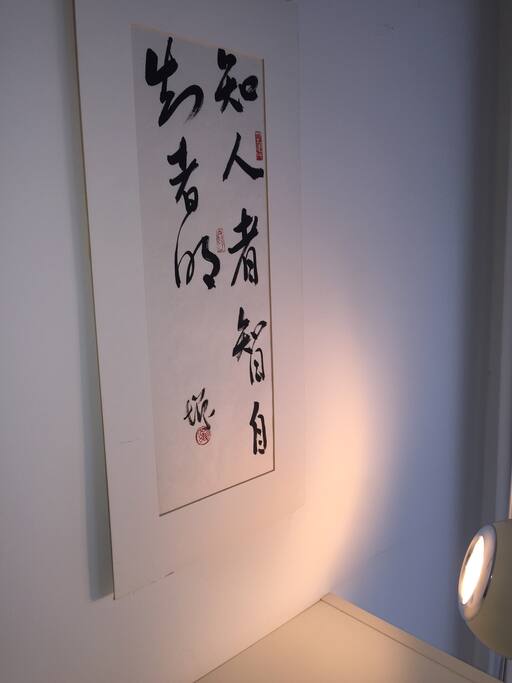 知人者智自
知者明